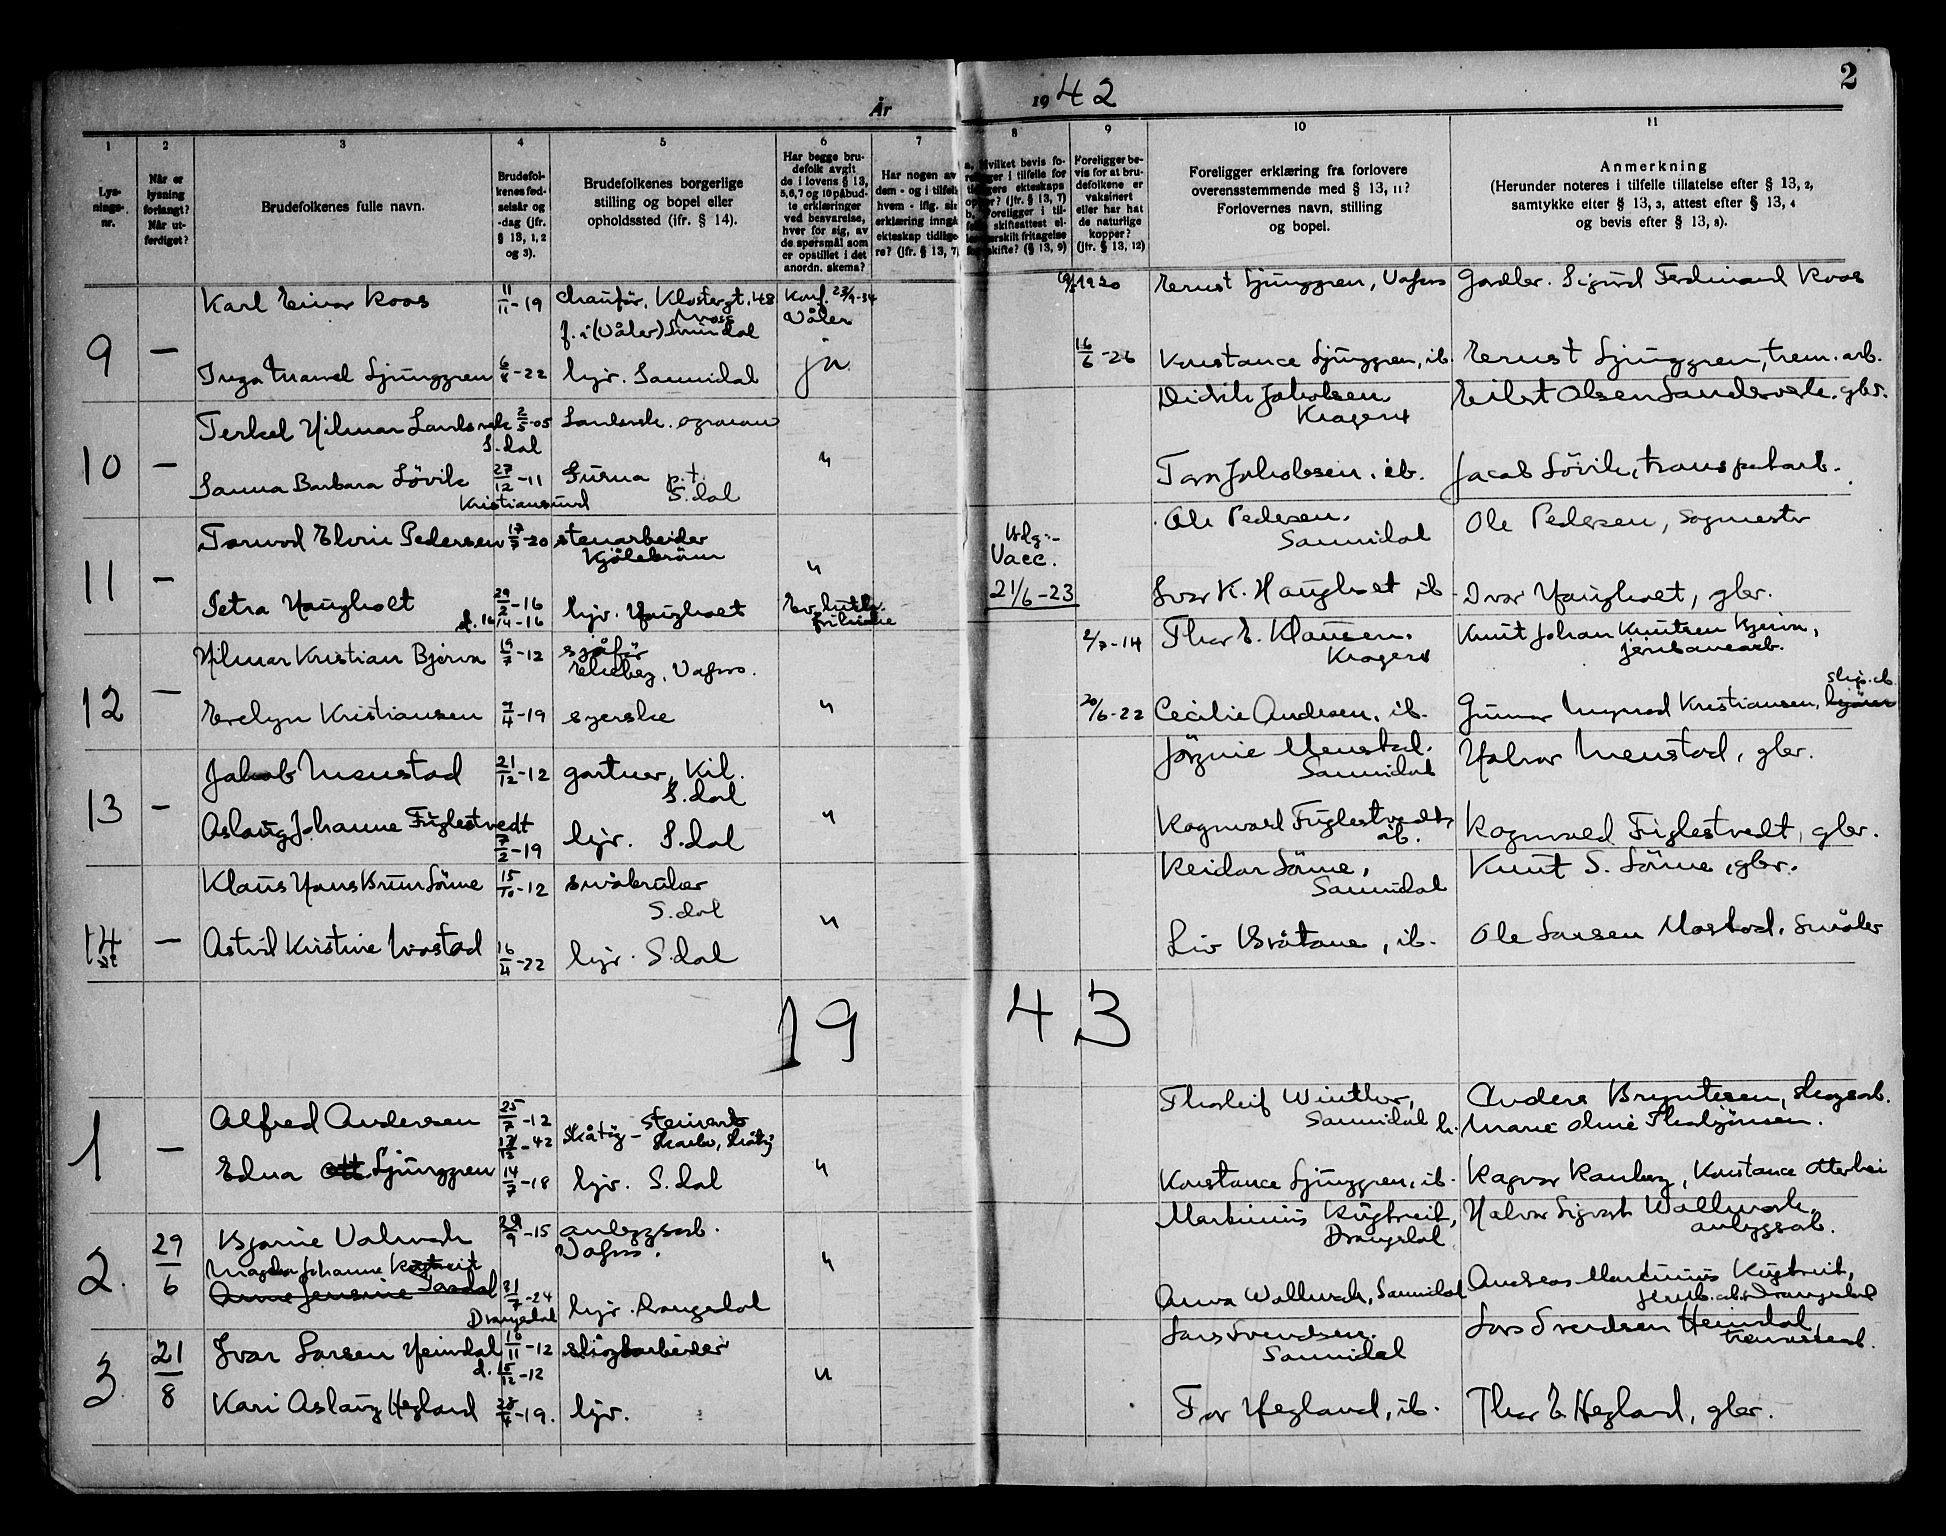 2
År 1942
1
2
3
4
5
6
7
8
9
10
11
Lys-
nings-
nr.
Når er
lysning
forlangt?
Når ut-
ferdiget?
Brudefolkenes fulle navn.
Brudefol-
kenes fød-
selsår og
-dag (jfr.
§ 13, 1, 2
og 3).
Brudefolkenes borgerlige
stilling og bopel eller
opholdssted (jfr. § 14).
Har begge bru-
defolk avgit
de i lovens § 13,
5, 6, 7 og 10 påbud-
te erklæringer
ved besvarelse,
hver for sig, av
de spørsmål som
er opstillet i det
anordn. skema?
Har nogen av
dem - og i tilfell
hvem - iflg. si
erklæring inngå
ekteskap tidlige-
re? (jfr. § 13, 7)
Foreligger be-
vis for at bru-
defolkene er
vaksinert
eller har hat
de naturlige
kopper?
(jfr. § 13, 12)
Foreligger erklæring fra forlovere
overensstemmende med § 13, 11?
Forlovernes navn, stilling
og bopel.
Anmerkning
(Herunder noteres i tilfelle tillatelse efter § 13, 2,
samtykke efter § 13, 3, attest efter § 13, 4
og bevis efter § 13, 8).
9 —
Karl Einar Roos 11/11-19 chauför, Klostergt. 48
Moss
f. i (Våler) Sannidal
Konf. 23/9-34
Våler
1920 Ernst Ljunggren, Vafoss Gardbr. Sigurd Ferdinand Roos
Inga Maud Ljunggren 6/8-22 hjv. Sannidal ja 16/6-26 Konstance Ljunggren, ib. Ernst Ljunggren, trem. arb.
10 —
Terkel Hilmar Landsverk 2/5-05 Landsverk. agronom
S.dal
Didrik Jakobsen
Kragerø
Eilert Olsen Landsverk. gbr.
Sanna Barbara Lövik 27/12-11 Furua p.t.
S.dal
Kristiansund
"
Tora Jakobsen. ib. Jacob Lövik, transportarb.
11 —
Tormod Elvin Pedersen 17/7-20 stenarbeider
Kjölebrönn
"
Udg:-
Vacc.
21/6-23
Ole Pedersen.
Sannidal
Ole Pedersen, sagmester
Petra Haugholt 29/2-16 hjv. Haugholt
d. 16/4-16
Ev. luth.
frikirke
Ivar K. Haugholt ib. Ivar Haugholt, gbr.
12 —
Hilmar Kristian Bjerva 19/7-12 sjåför
Ekeberg, Vafoss.
2/7-14 Thor E. Klausen.
Kragerø
Knut Johan Knutsen Bjerva,
jernbanearb.
Evelyn Kristiansen 7/4-19 syerske " 20/6-22 Cecilie Andersen, ib. Gunnar Kristiansen, slip.arb.
13 —
Jakob Menstad 21/12-12 gartner, Kil.
S.dal
"
Jörgine Menstad.
Sannidal
Halvor Menstad, gbr.
Aslaug Johanne Fuglestvedt
7/2-19 hjv. S.dal
Ragnvald Fuglestvedt,
ib.
Ragnvald Fuglestvedt, gbr.
14 —
Klaus Hans Bruun Sörme 15/10-12 småbruker
S.dal
"
Reidar Sörme,
Sannidal
Knut S. Sörme, gbr.
Astrid Kristine Mostad 16/4-22 hjv. S.dal Liv Bråtane, ib. Ole Larsen Mostad. småbr
1943
1 —
Alfred Andersen 25/7-12
17/12-42
Skåtøy - Stenarb
Skarbo, Skåtøy
Thorleif Winther,
Sannidal
Anders Bryntesen, skogsarb.
h. Marie Oline Thorbjönsen.
Edna Ljunggren 14/7-18 hjv. S.dal " Konstance Ljunggren, ib. Ragnar Ramberg, Konstance Otterbei
2. 29/6
Bjarne Valmark 29/9-15 anleggsarb.
Vafoss.
"
Martinius Kugtveit,
Drangedal
Halvor Sigvart Wallmark.
anlegsarb.
Magda Johanne Kugtveit
Anne Jensine
21/7-24 hjv. Drangedal
Drangedal
Anna Wallmark, Sannidal Andreas Martinius Kugtveit,
jernb.arb. Drangedal
3. 21/8
Ivar Larsen Heimdal 16/11-12 skogsarbeider
d. 15/12-12
"
Lars Svendsen.
Sannidal
Lars Svendsen Heimdal,
Kari Aslaug Hegland 28/4-19. hjv. Tor Hegland, ib. Thor E. Hegland, gbr.